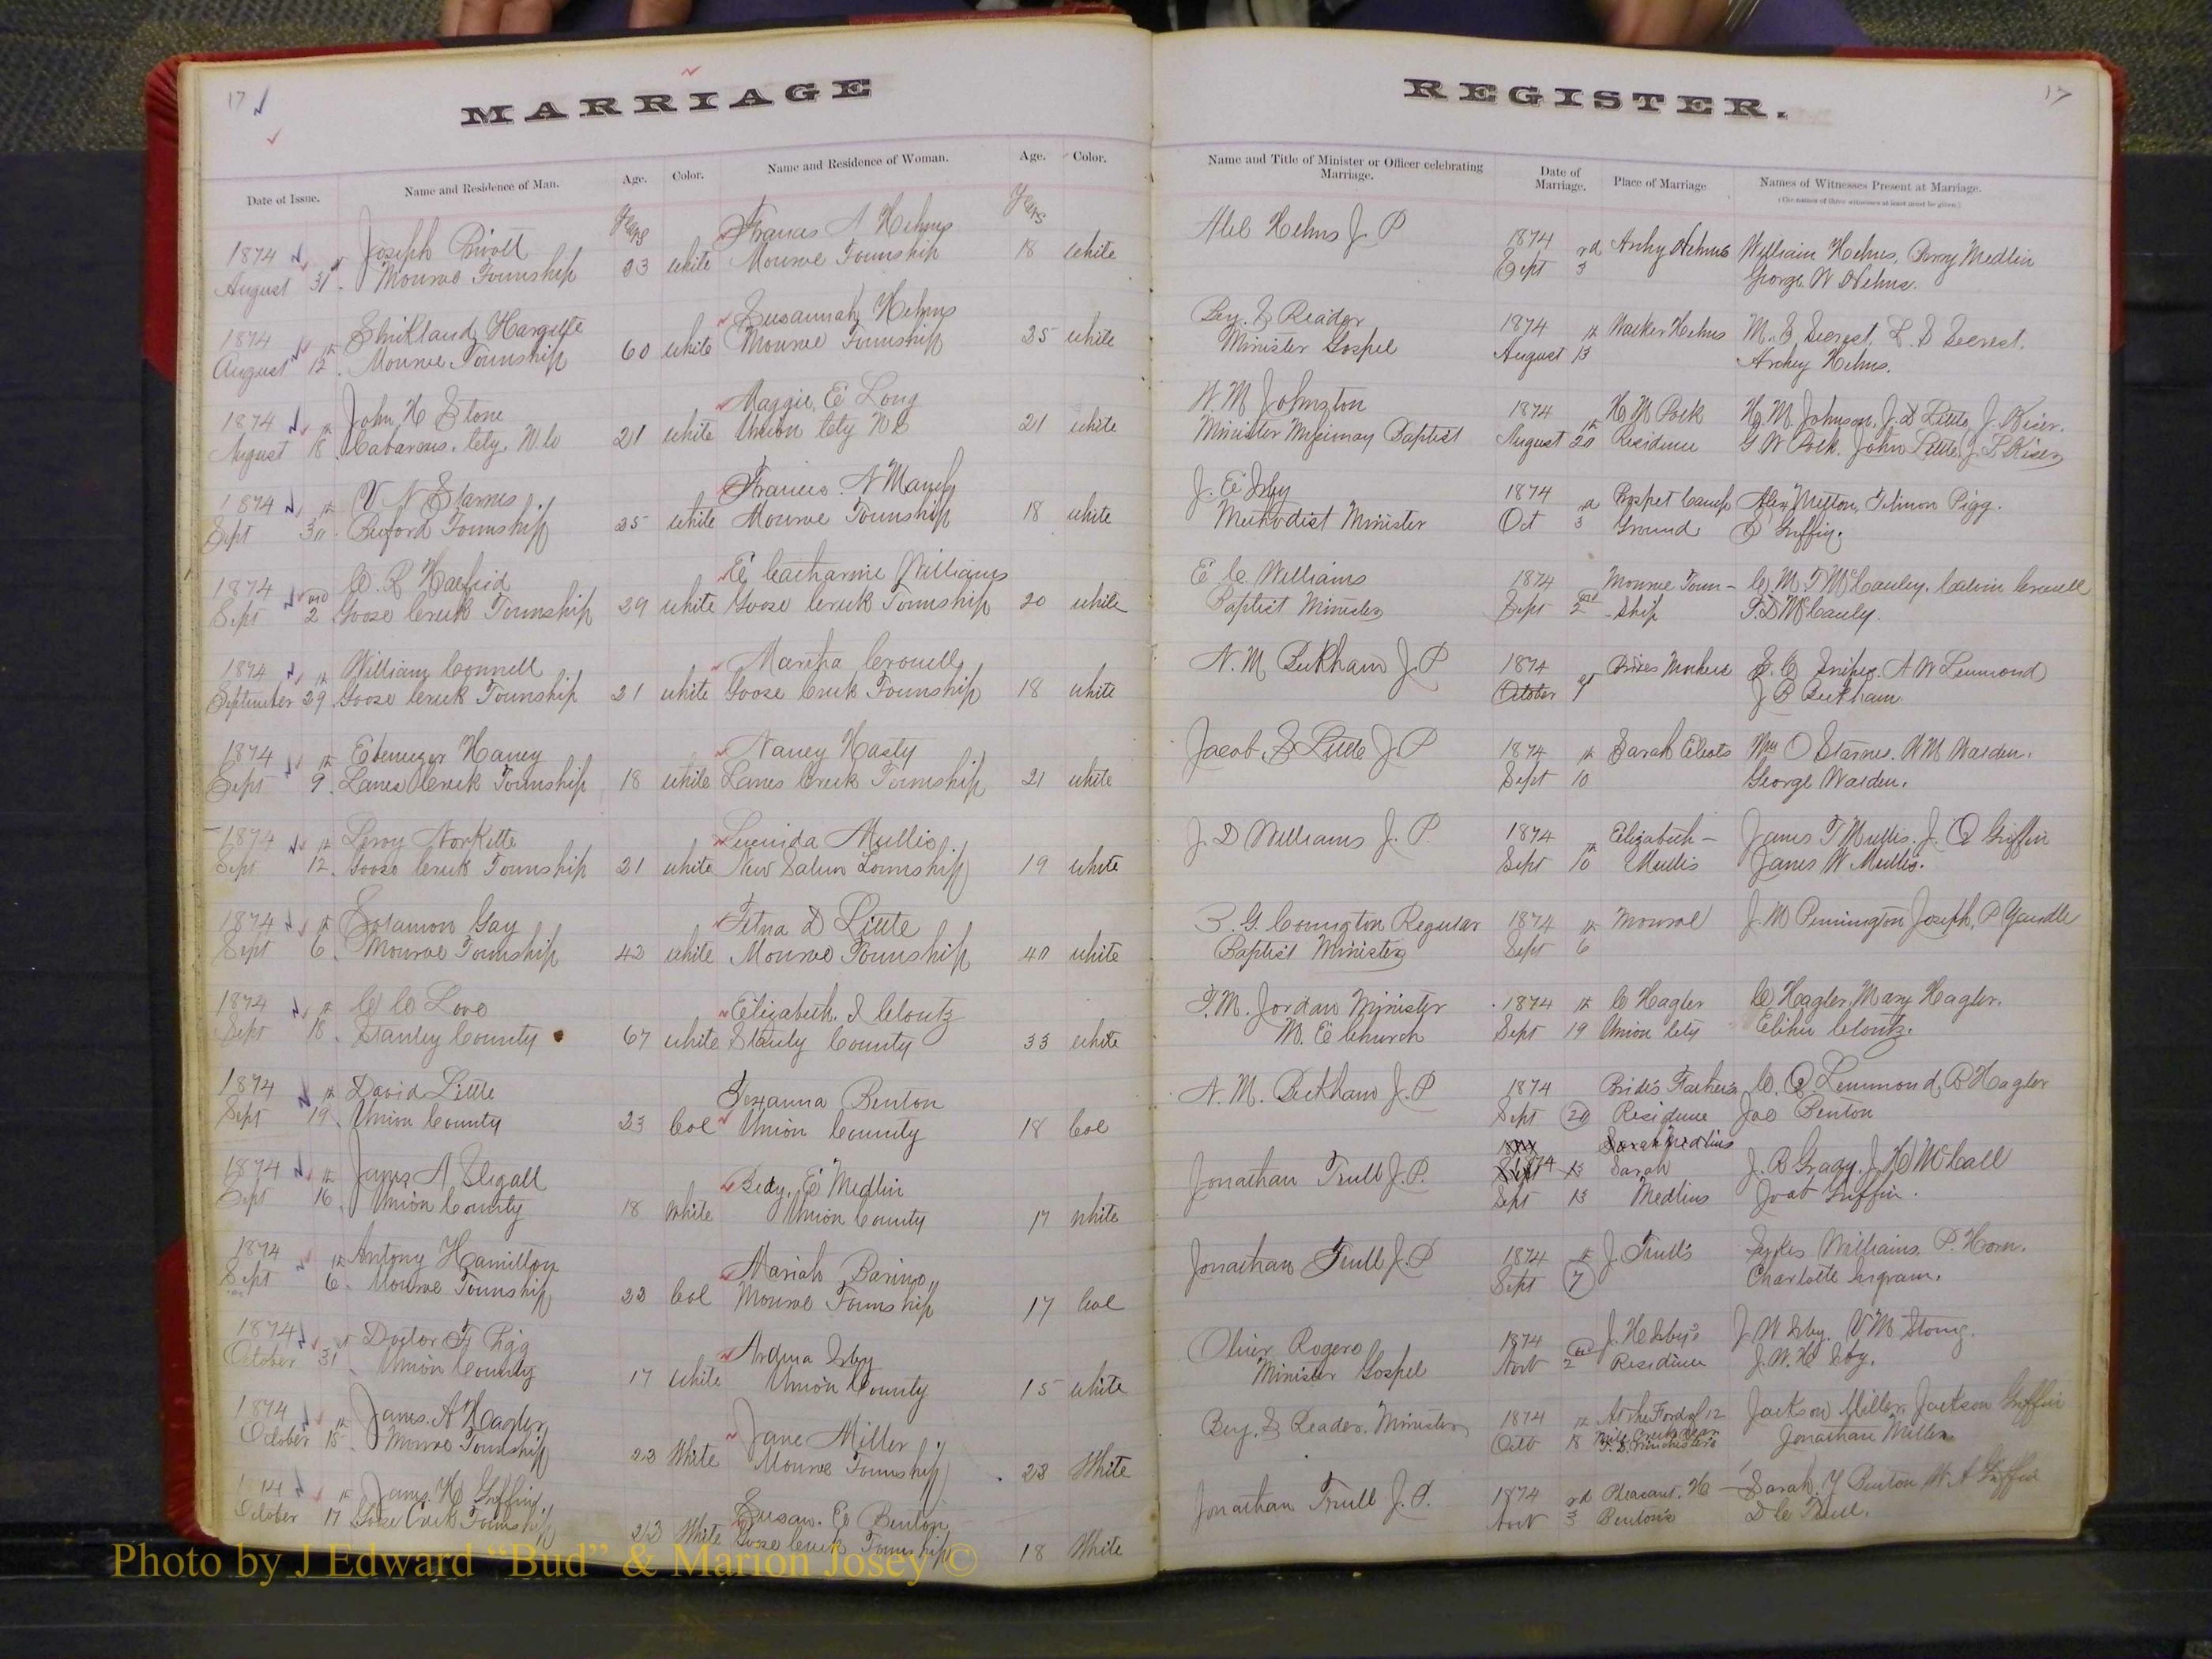 17
MARRIAGE
Date of Issue.
Name and Residence of Man.
Age.
Color.
Name and Residence of Woman.
Age.
Color.
Years
Years
1874 Joseph Frances A Helms
August 31 Monroe Township 23 white Monroe Township 18 white
1874 Strikland Hargette Susannah Helms
August 12 Monroe Township 60 white Monroe Township 35 white
1874 John H Stone Maggie E Long
August 18 Cabarrus Cty. N C 21 white Union Cty N C 21 white
1874 V N Starnes Frances N
Sept 30 Buford Township 25 white Monroe Township 18 white
1874 E Catharine Williams
Sept 2nd Goose Creek Township 29 white Goose Creek Township 20 white
1874 William Connell Crowell
September 29 Goose Creek Township 21 white Goose Creek Township 18 white
1874 Ebenezer Haney Nancy Hasty
Sept 9 Lanes Creek Township 18 white Lanes Creek Township 21 white
1874 Leroy Norkette Lucinda Mullis
Sept 12 Goose Creek Township 21 white New Salem Township 19 white
1874 Solamon Gay D Little
Sept 6 Monroe Township 42 white Monroe Township 40 white
1874 Love Elizabeth Cloutz
Sept 18 Stanley County 67 white Stanly County 33 white
1874 David Little Benton
Sept 19 Union County 23 Col Union County 18 Col
1874 James A Stegall E Medlin
Sept 16 Union County 18 White Union County 17 White
1874 Antony Hamilton Mariah
Sept 6 Monroe Township 23 Col Monroe Township 17 Col
1874 Doctor F Pigg Irby
October 31 Union County 17 White Union County 15 white
1874 James A Hagler Jane Miller
October 15 Monroe Township 23 White Monroe Township 23 White
James H Griffin Susan E Benton
October 17 Goose Creek Township 23 White Goose Creek Township 18 White
REGISTER.
17
Name and Title of Minister or Officer celebrating
Marriage.
Date of
Marriage.
Place of Marriage
Names of Witnesses Present at Marriage.
(The names of three witnesses at least must be given.)
Abel Helms J. P 1874 Archy Helms William Helms, Perry Medlin
Sept 3rd George W Helms.
Reader 1874 Walker Helms M. Secrest, Secrest.
Minister Gospel August 13 Archey Helms.
W. M Johnston 1874 H M Polk H. M. Johnson, J. D Little, J. Kiser.
Minister Baptist August 20 Residence G W Polk. John Little, J. L Kiser
J. E Irby 1874 Camp Alex Melton, Pigg.
Methodist Minister Oct 3 Ground Griffin.
E C Williams 1874 Monroe Town- M. F McCauley. Calvin Crowell
Baptist Minister Sept 2nd ship T. D McCauly.
N. M Beckham J. P 1874 A W Lemmond
October 1st J Beckham
Jacob Little J. P 1874 Sarah Wm O Starnes. W M Walden.
Sept 10 George Walden.
J. D Williams J. P. 1874 Elizabeth- James T Mullis. J. Q Griffin
Sept 10 Mullis James W Mullis.
G. Covington Regular 1874 Monroe J. M Pennington Joseph P Yandle
Baptist Minister Sept 6
T. M. Jordan Minister 1874 C Hagler C Hagler, Mary Hagler.
M. E Church Sept 19 Union Cty Elihu Cloutz.
N. M. Beckham J. P 1874 Bride's Father's Lemmond, Hagler
Sept 20 Residence Benton
Jonathan Trull J. P. Sarah J. R Gracy, J. McCall
Sept 13 Medlins Griffin.
Jonathan Trull J. P 1874 J. Trull's Sykes Williams, P. Horn.
Sept 7 Charlotte Ingram.
Oliver Rogers 1874 J. H Irby's J. W Irby.
Minister Gospel Nov 2nd Residence J. W. H Irby.
Reader. Minister 1874 At the Ford of 12 Jackson Miller, Jackson Griffin
Oct 18 Mile Creek near Jonathan Miller
Jonathan Trull J. P. 1874 Pleasant. H Sarah Benton W. A Griffin
Nov 3rd Benton's D C Trull.
Photo by J Edward “Bud” & Marion Josey ©